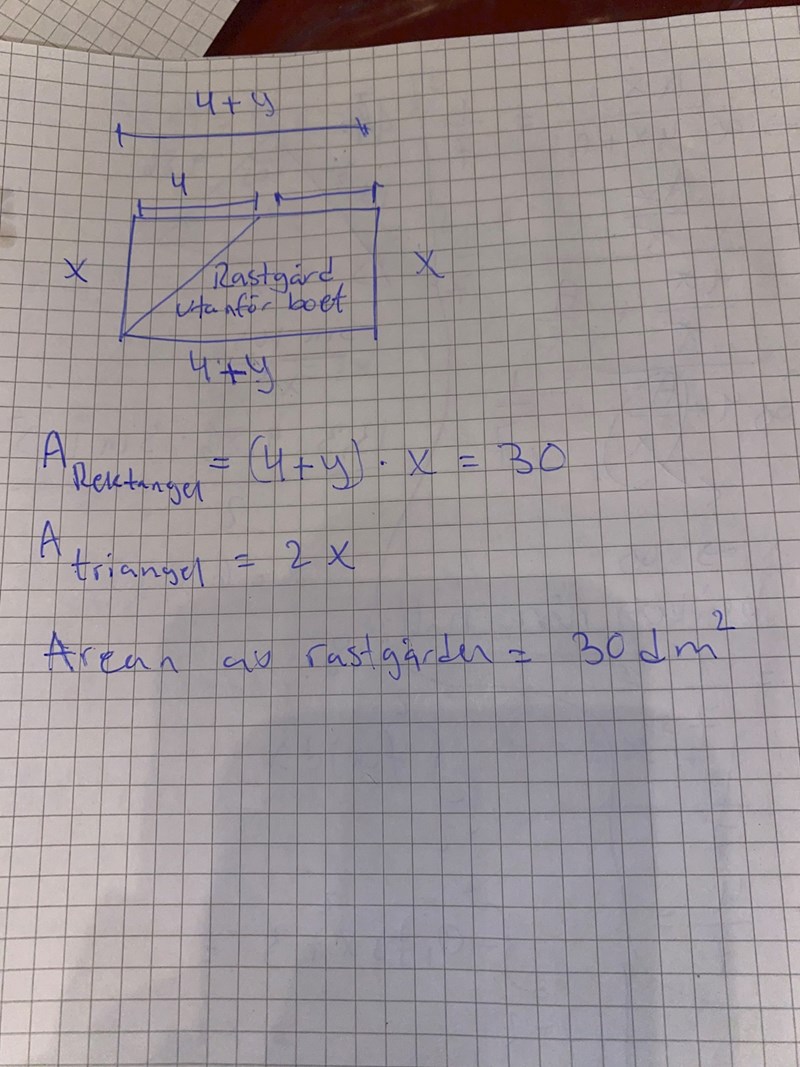 4+y
4
x
Rastgård
x
utanför boet
4+y
A Rektangel = (4+y) · x = 30
A triangel = 2x
Arean av rastgården = 30 dm²